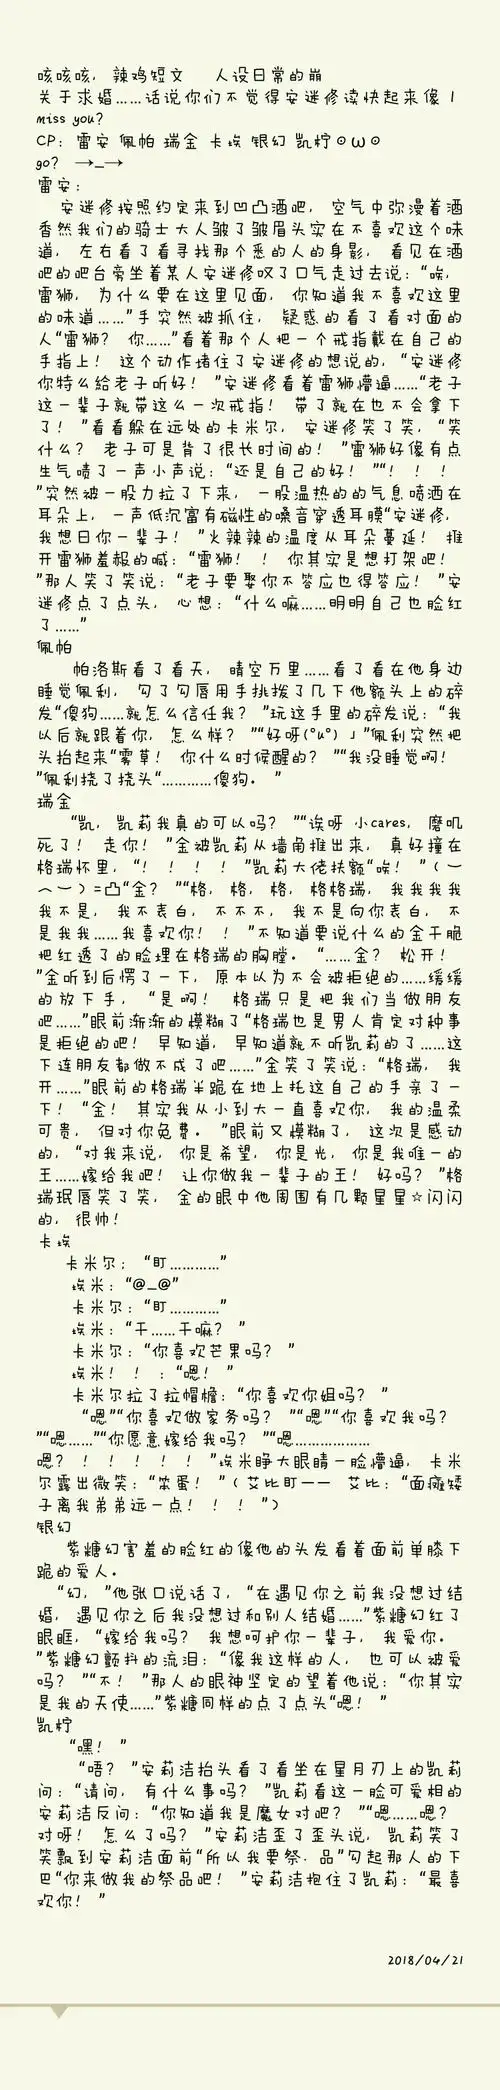 咳咳咳，辣鸡短文　人设日常的崩
关于求婚……话说你们不觉得安迷修读快起来像 I
miss you?
CP：雷安 佩帕 瑞金 卡埃 银幻 凯柠⊙ω⊙
go? →_→
雷安：
安迷修按照约定来到凹凸酒吧，空气中弥漫着酒
香然我们的骑士大人皱了皱眉头实在不喜欢这个味
道，左右看了看寻找那个悉的人的身影，看见在酒
吧的吧台旁坐着某人安迷修叹了口气走过去说：“唉，
雷狮，为什么要在这里见面，你知道我不喜欢这里
的味道……”手突然被抓住，疑惑的看了看对面的
人“雷狮？你……”看着那个人把一个戒指戴在自己的
手指上！这个动作堵住了安迷修的想说的，“安迷修
你特么给老子听好！”安迷修看着雷狮懵逼……“老子
这一辈子就带这么一次戒指！带了就在也不会拿下
了！”看看躲在远处的卡米尔，安迷修笑了笑，“笑
什么？老子可是背了很长时间的！”雷狮好像有点
生气啧了一声小声说：“还是自己的好！”“！！！
”突然被一股力拉了下来，一股温热的的气息喷洒在
耳朵上，一声低沉富有磁性的嗓音穿透耳膜“安迷修，
我想日你一辈子！”火辣辣的温度从耳朵蔓延！推
开雷狮羞赧的喊：“雷狮！！你其实是想打架吧！
”那人笑了笑说：“老子要娶你不答应也得答应！”安
迷修点了点头，心想：“什么嘛……明明自己也脸红
了……”
佩帕
帕洛斯看了看天，晴空万里……看了看在他身边
睡觉佩利，勾了勾唇用手挑拨了几下他额头上的碎
发“傻狗……就怎么信任我？”玩这手里的碎发说：“我
以后就跟着你，怎么样？”“好呀(°u°)」”佩利突然把
头抬起来“雾草！你什么时候醒的？”“我没睡觉啊！
”佩利挠了挠头“…………傻狗。”
瑞金
“凯，凯莉我真的可以吗？”“诶呀 小cares，磨叽
死了！走你！”金被凯莉从墙角推出来，真好撞在
格瑞怀里，“！！！！”凯莉大佬扶额“唉！”（一
︿一）=凸“金？”“格，格，格，格格瑞，我我我我
我不是，我不表白，不不不，我不是向你表白，不
是我我……我喜欢你！！”不知道要说什么的金干脆
把红透了的脸埋在格瑞的胸膛。“……金？松开！
”金听到后愣了一下，原本以为不会被拒绝的……缓缓
的放下手，“是啊！格瑞只是把我们当做朋友
吧……”眼前渐渐的模糊了“格瑞也是男人肯定对种事
是拒绝的吧！早知道，早知道就不听凯莉的了……这
下连朋友都做不成了吧……”金笑了笑说：“格瑞，我
开……”眼前的格瑞半跪在地上托这自己的手亲了一
下！“金！其实我从小到大一直喜欢你，我的温柔
可贵，但对你免费。”眼前又模糊了，这次是感动
的，“对我来说，你是希望，你是光，你是我唯一的
王……嫁给我吧！让你做我一辈子的王！好吗？”格
瑞珉唇笑了笑，金的眼中他周围有几颗星星☆闪闪
的，很帅！
卡埃
卡米尔；“盯…………”
埃米：“@_@”
卡米尔：“盯…………”
埃米：“干……干嘛？”
卡米尔：“你喜欢芒果吗？”
埃米！！：“嗯！”
卡米尔拉了拉帽檐：“你喜欢你姐吗？”
“嗯”“你喜欢做家务吗？”“嗯”“你喜欢我吗？
”“嗯……”“你愿意嫁给我吗？”“嗯………………
嗯？！！！！！”埃米睁大眼睛一脸懵逼，卡米
尔露出微笑：“笨蛋！”（艾比盯一一 艾比：“面瘫矮
子离我弟弟远一点！！！”）
银幻
紫糖幻害羞的脸红的像他的头发看着面前单膝下
跪的爱人。
“幻，”他张口说话了，“在遇见你之前我没想过结
婚，遇见你之后我没想过和别人结婚……”紫糖幻红了
眼眶，“嫁给我吗？我想呵护你一辈子，我爱你。
”紫糖幻颤抖的流泪：“像我这样的人，也可以被爱
吗？”“不！”那人的眼神坚定的望着他说：“你其实
是我的天使……”紫糖同样的点了点头“嗯！”
凯柠
“嘿！”
“唔？”安莉洁抬头看了看坐在星月刃上的凯莉
问：“请问，有什么事吗？”凯莉看这一脸可爱相的
安莉洁反问：“你知道我是魔女对吧？”“嗯……嗯？
对呀！怎么了吗？”安莉洁歪了歪头说，凯莉笑了
笑飘到安莉洁面前“所以我要祭.品”勾起那人的下
巴“你来做我的祭品吧！”安莉洁抱住了凯莉：“最喜
欢你！”
2018/04/21